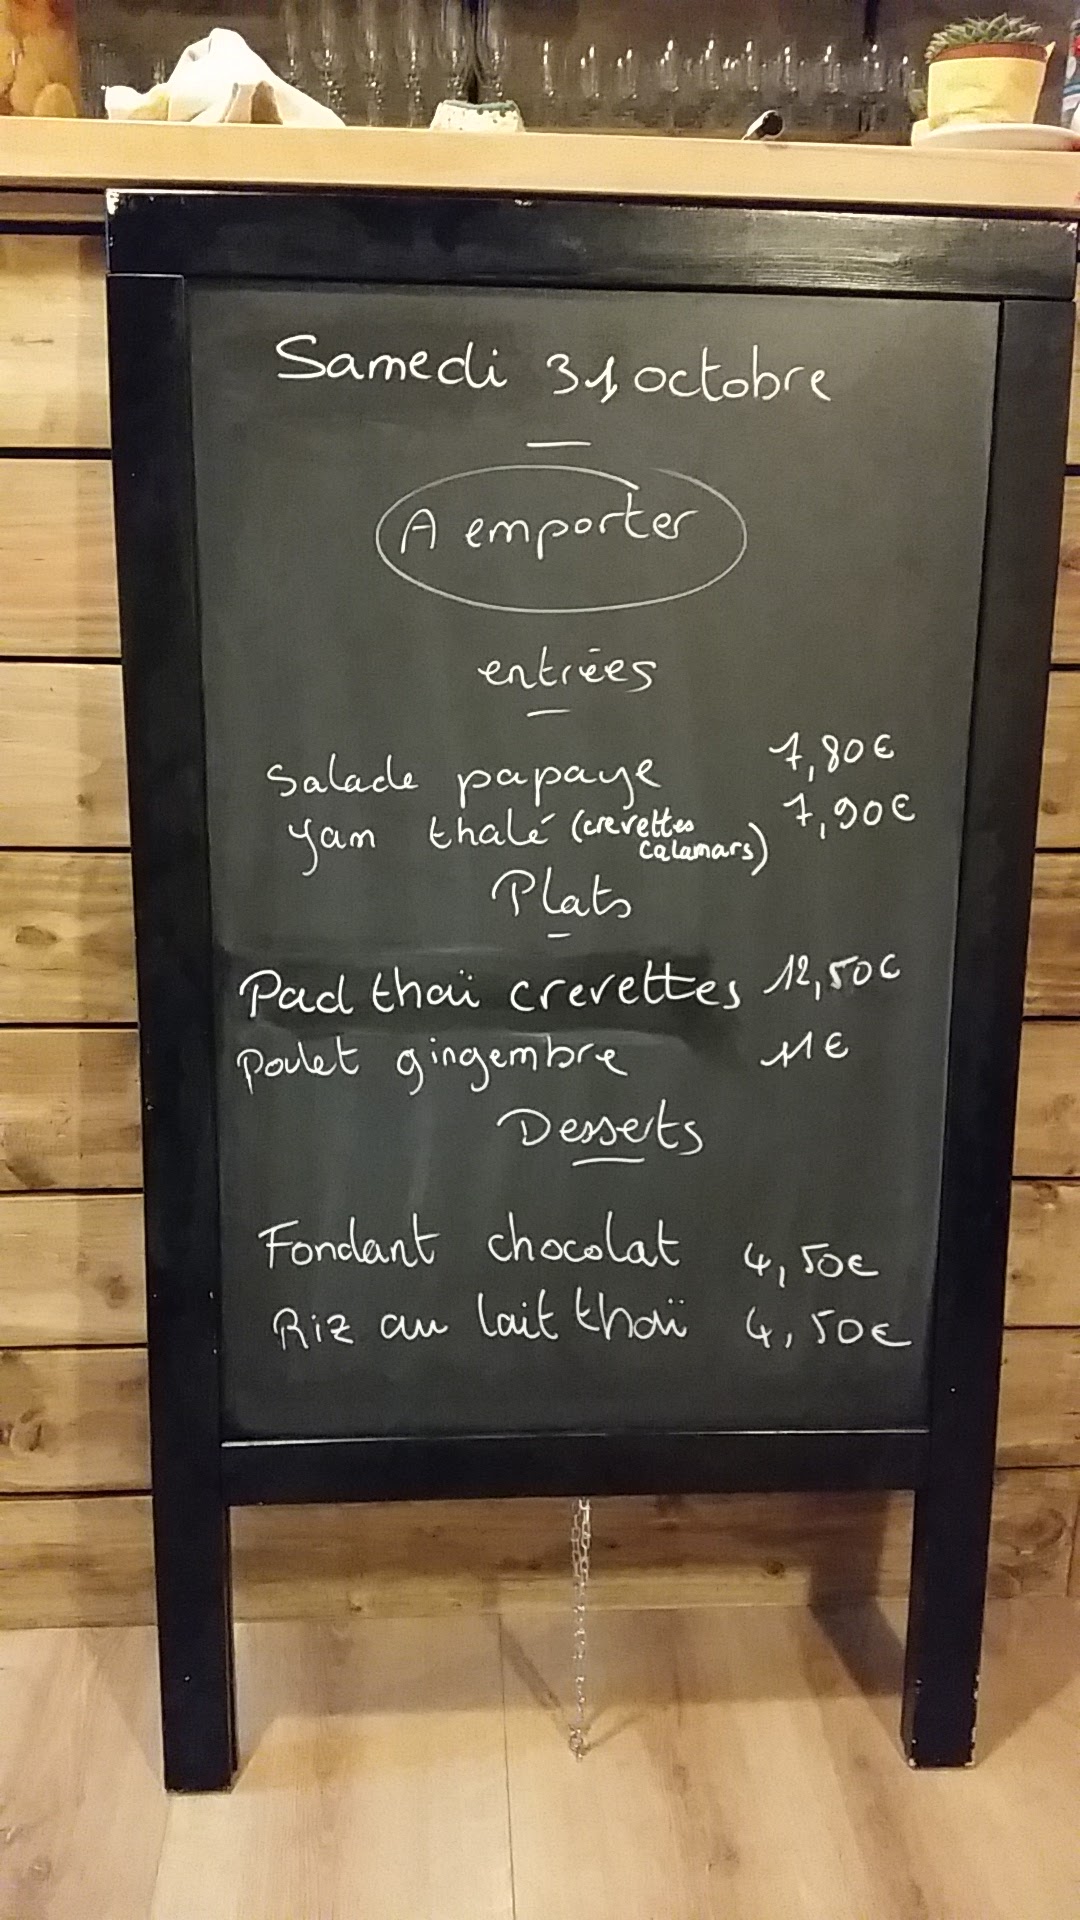 Samedi 31 octobre
A emporter
entrées
Salade papaye 7,80€
Yam thalé (crevettes calamars) 7,90€
Plats
Pad thaï crevettes 12,50€
poulet gingembre 11€
Desserts
Fondant chocolat 4,50€
Riz au lait thaï 4,50€